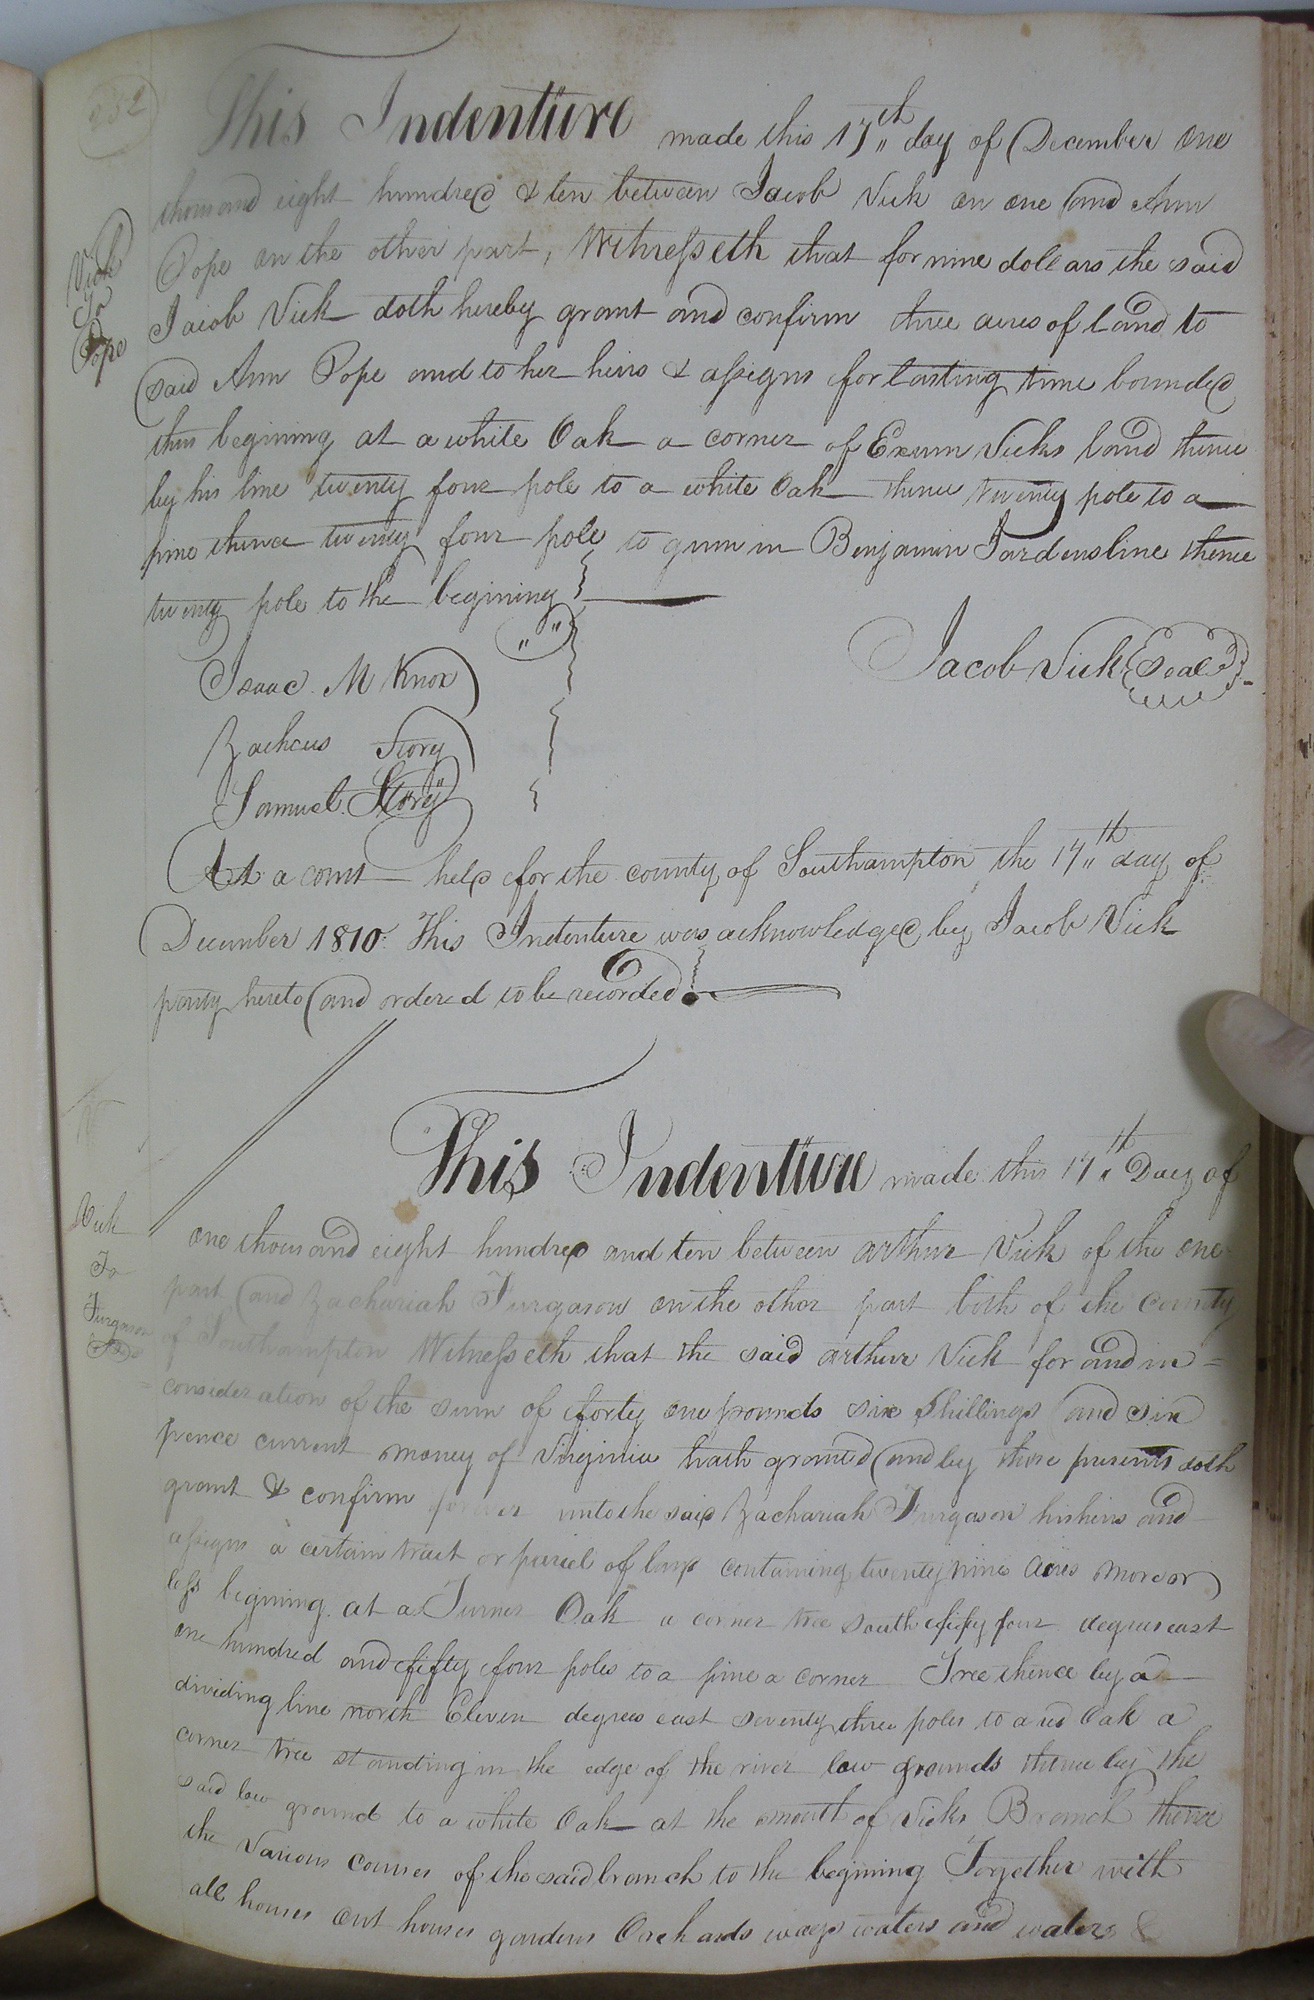 232
This Indenture made this 17th day of December one
thousand eight hundred & ten between Jacob Vick on one and Ann
Pope on the other part, Witnesseth that for nine dollars the said
Jacob Vick doth hereby grant and confirm three acres of land to
said Ann Pope and to her heirs & assigns for lasting time bounded
thus begining at a white Oak a corner of Exum Vicks land thence
by his line twenty four pole to a white Oak thence twenty pole to a
pine thence twenty four pole to gum in Benjamin Jordens line thence
twenty pole to the begining
Vick
To
Pope
Jacob Vick Seal
Isaac M Knox
Zacheus Story
Samuel Story
At a court held for the county of Southampton the 17th day of
December 1810 This Indenture was acknowledged by Jacob Vick
party hereto and ordered to be recorded
This Indenture made this 17th Day of
one thousand eight hundred and ten between arthur Vick of the one
part and Zachariah Furgason on the other part both of the County
of Southampton Witnesseth that the said arthur Vick for and in =
consideration of the sum of forty one pounds six shillings and six
pence current money of Virginia hath granted and by these presents doth
grant & confirm forever unto the said Zachariah Furgason his heirs and
assigns a certain tract or parcel of land containing twenty nine acres more or
less begining at a Turner Oak a corner tree south fifty four degrees east
one hundred and fifty four poles to a pine a corner Tree thence by a
dividing line north Eleven degrees east seventy three poles to a red Oak a
corner tree standing in the edge of the river low grounds thence by the
said low ground to a white Oak at the mouth of Vicks Branch thence
the Various courses of the said branch to the begining Together with
all houses out houses gardens Orchards ways waters and waters &
Vick
To
Furgason